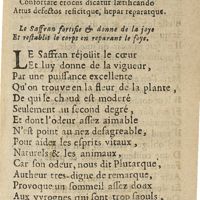 Confortare crocus dicatur lætificando
Artus defectos reficitque, hepar reparatque.
Le Saffran fortifie & donne de la joye
Et restablit le corps en reparant le foye.
LE Saffran réjoüit le cœur
Et luy donne de la vigueur,
Par une puissance excellente
Qu'on trouve en la fleur de la plante,
De qui le chaud est moderé
Seulement au second degré,
Et dont l'odeur assez aimable
N'est point au nez desagreable,
Pour aider les esprits vitaux,
Naturels & les animaux,
Car son odeur, nous dit Plutarque,
Autheur tres-digne de remarque,
Provoque un sommeil assez doux
Aux yvrognes qui sont trop saouls,